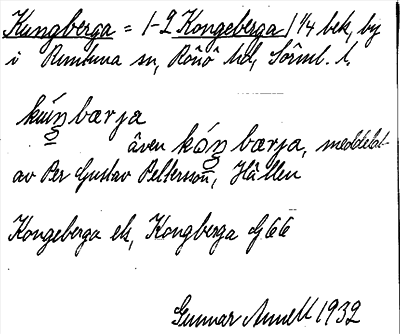 Kungberga = 1-2 Kongeberga 1 1/4 bek, by
i Rimbona sn, Rönö hd, Sörml. l.
kuŋ̊barja
även kɔŋ̊barja, meddelat
av Per Gustav Petterson, Hållen
Kongeberga ek, Kongberga GEE
Gunnar 1932